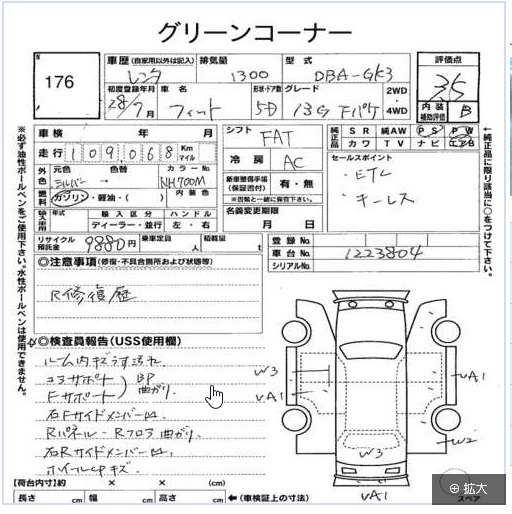 グリーンコーナー
176
車歴 (自家用以外は記入) 排気量 型式 評価点
レンタ 1300 DBA-GK3 3.5
初度登録年月 車名 形状・ドア数 グレード 2WD・4WD 内装補助評価
28/7月 フィット 5D 13G Fパケ B
車検 年 月 シフト FAT 純正品 SR 純AW PS PW
走行 109,068 Km マイル カワ TV ナビ エアB
冷房 AC
セールスポイント
・ETC
・キーレス
外色 元色 色替 カラーNo.
シルバー NH700M
燃料 ガソリン・軽油・( ) 内装色
新車整備手帳(保証書付) 有・無
※四輪と一緒に保管下さい。
輸入用 年式 輸入区分 ハンドル
ディーラー・並行 左・右
名義変更期限 月 日
リサイクル預託金 9880円 乗車定員 人 積載量 t
登録No.
車台No. 1223804
シリアルNo.
◎注意事項 (修復・不具合箇所および状態等)
R修復歴
☆◎検査員報告(USS使用欄)
ルーム内キズうす汚れ
コアサポート BP
Fサポート 曲がり
右Fサイドメンバー凹
Rパネル・Rフロア曲がり、
右Rサイドメンバー凹
ホイールCPキズ
W3
UA1
UA1
W2
W3
UA1
【荷台内寸】約 × × (cm)
長さ cm 幅 cm 高さ cm ←(車検証上の寸法)
スペア
拡大
※必ず油性ボールペンをご使用下さい。水性ボールペンは使用できません。
←純正品に限り該当に○をつけて下さい。